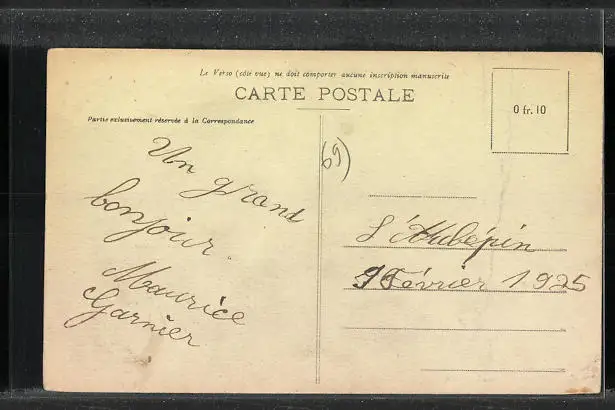 Le Verso (côté vue) ne doit comporter aucune inscription manuscrite
CARTE POSTALE
0 fr. 10
Partie exlusivement réservée à la Correspondance
Un grand
bonjour.
Maurice
Garnier
69)
L'Aubépin
9 Février 1925